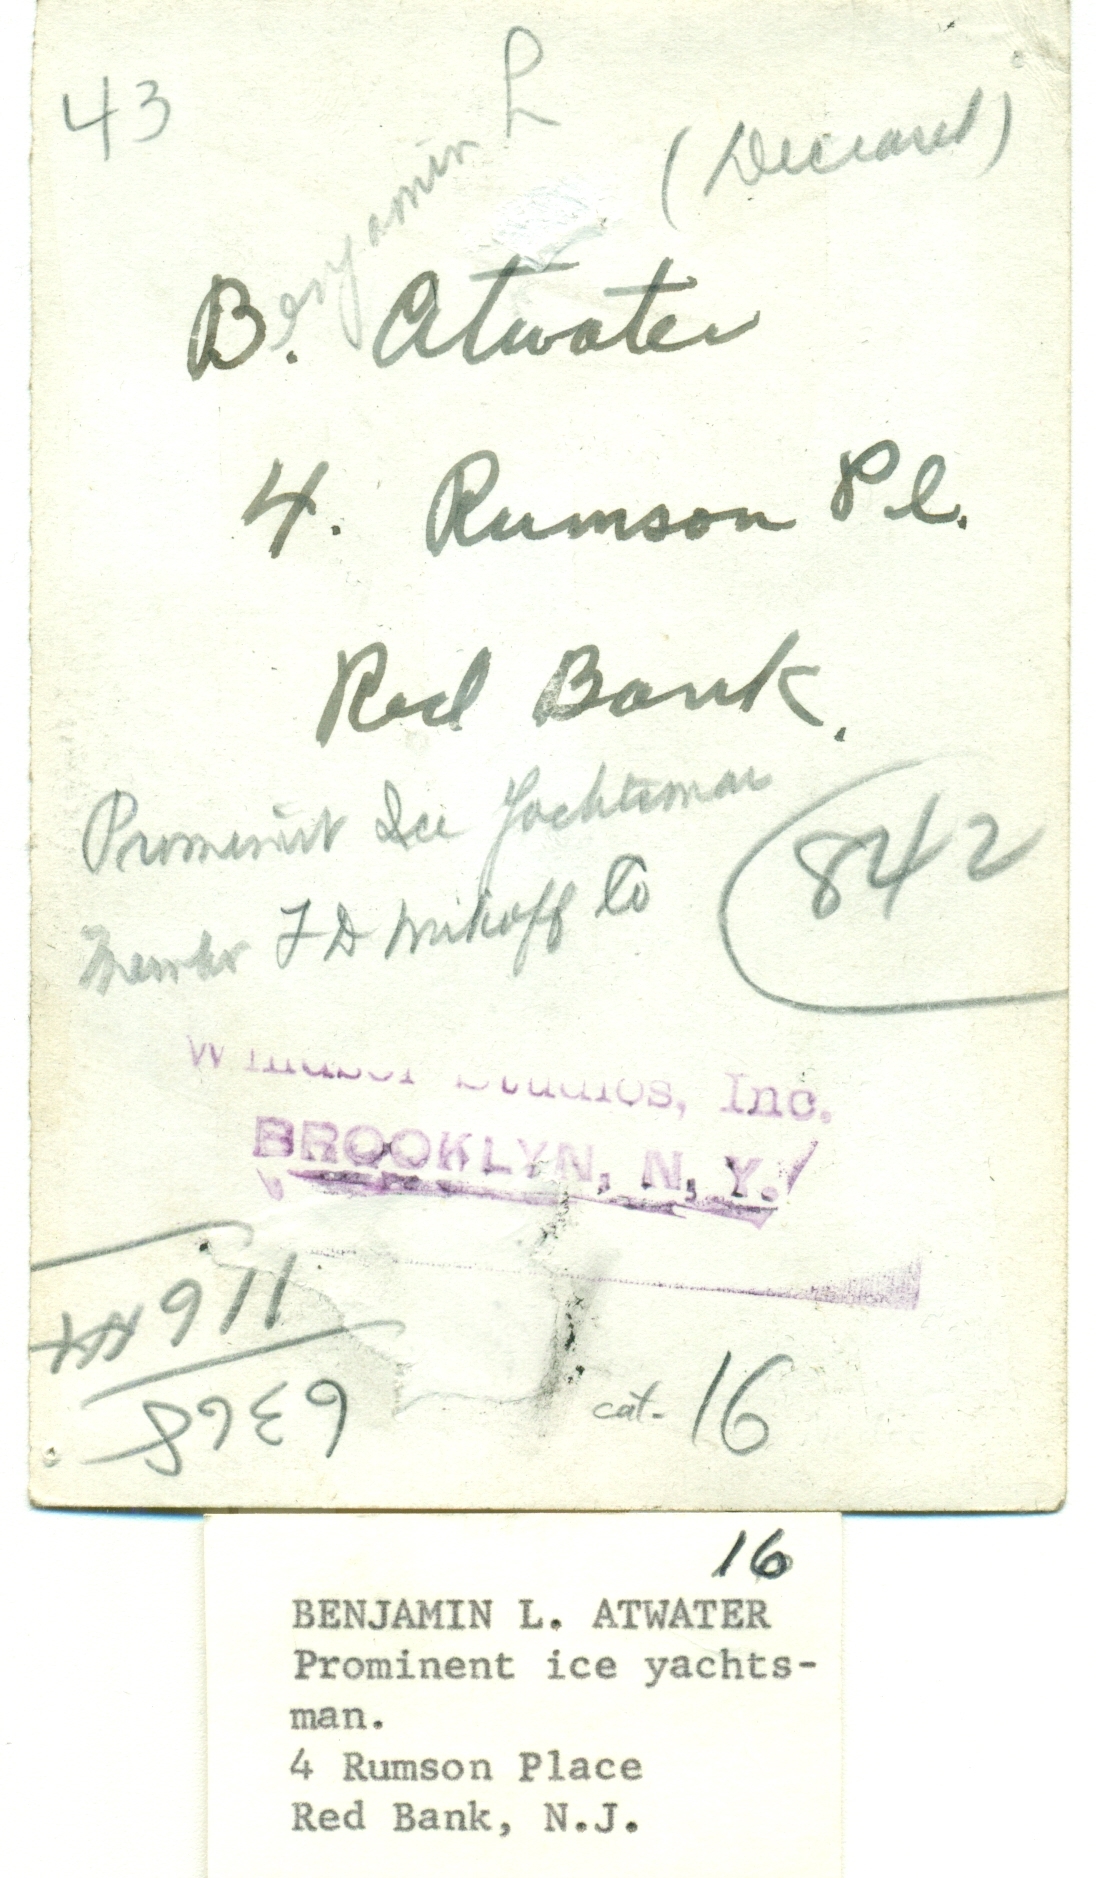 43
Benjamin L
(Deceased)
B. Atwater
4. Rumson Pl.
Red Bank.
Prominent Ice Yachtsman
Member F D Wikoff Co
842
Windsor Studios, Inc.
BROOKLYN, N. Y.
116
6368
cat. 16
16
BENJAMIN L. ATWATER
Prominent ice yachts-
man.
4 Rumson Place
Red Bank, N.J.